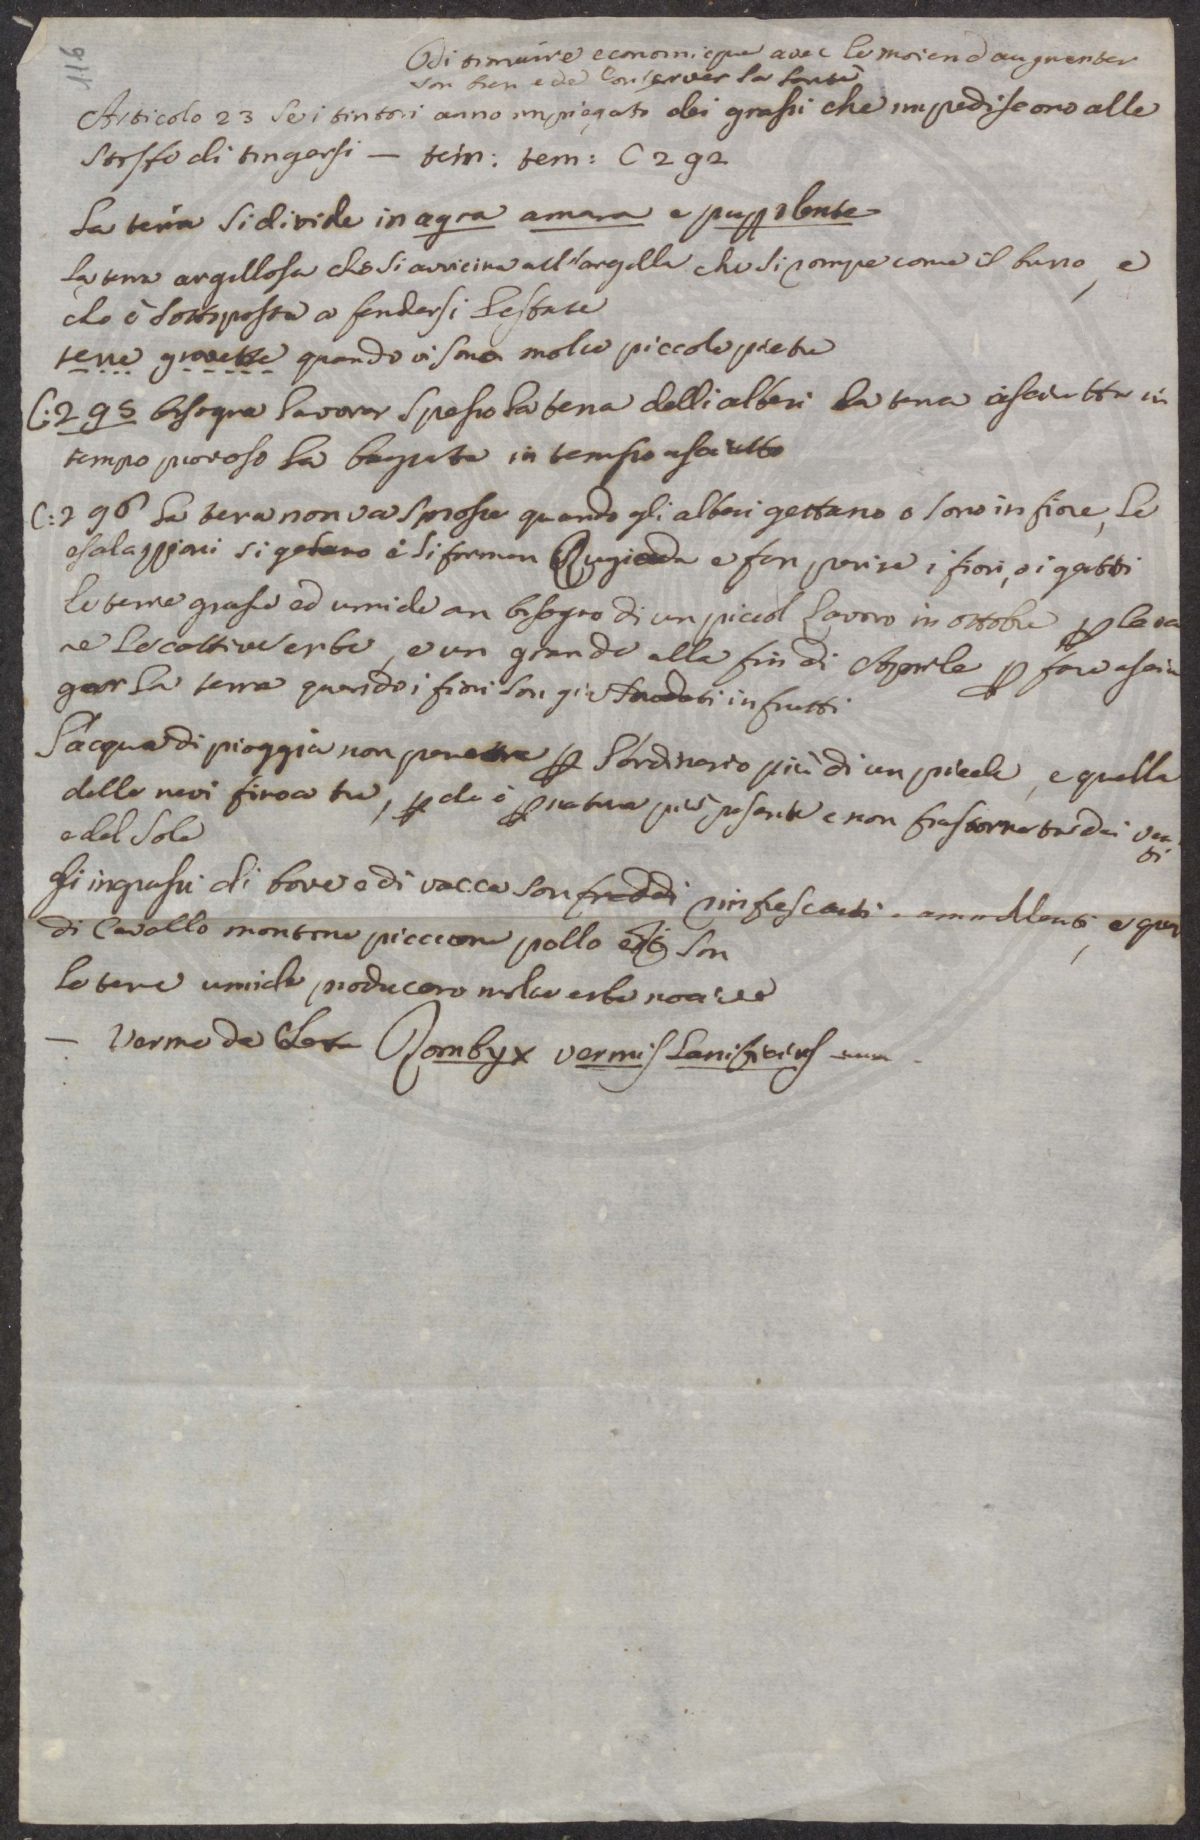 116
Ditionnaire economique avec le moien d augmenter
son bien e de Conserver la santé
Articolo 23 se i tintori anno impiegato dei grassi che impediscono alle
stoffe di tingersi — tein: tem: C 292
La terra si divide in agra amara e puzzolente
La terra argillosa che si avvicina all'argilla che si rompe come il burro, e
che è sottoposta a fendersi l'estate
terre grovette quando vi sono molte piccole pietre
C: 295 bisogna lavorar spesso la terra delli alberi la terra asciutta in
tempo piovoso la bagnata in tempo asciutto
C: 296 La terra non va smossa quando gli alberi gettano o sono in fiore, le
esalazzioni si gelano e si forman Rugiada e fan perire i fiori, o i getti
Le terre grasse ed umide an bisogno di un piccol lavoro in ottobre p leva
re le cattive erbe, e un grande alla fin di Aprile p fare asciu
gar la terra quando i fiori son già annodati in frutti
L'acqua di pioggia non penetra p l'ordinario più di un piede, e quella
delle nevi fino a tre, p che è p natura più pesante e non frastornata dai ven
ti
e del sole
Gl'ingrassi di bove e di vacca son freddi rinfrescanti ammollenti, e quei
di Cavallo montone piccione pollo son
Le terre umide producono molte erbe nocive
— Verme da Seta Bombyx vermis lanificius